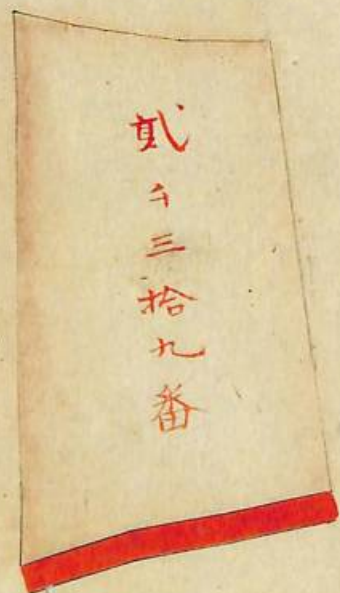 貳千三拾九番